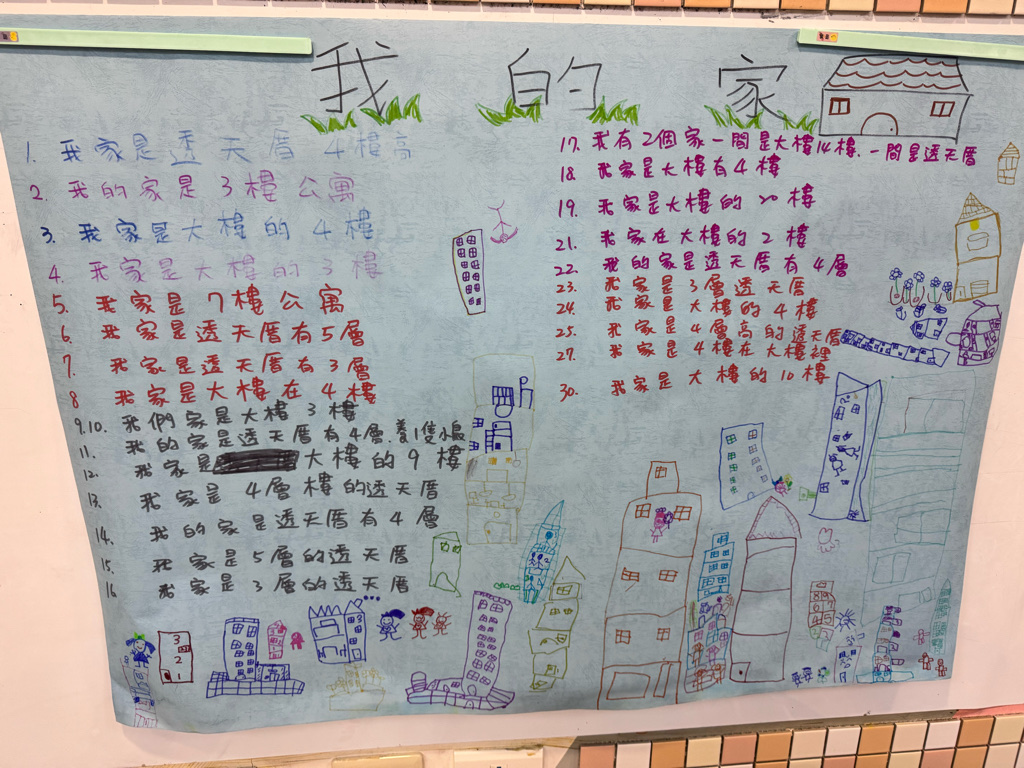 我的家
1. 我家是透天厝4樓高
2. 我的家是3樓公寓
3. 我家是大樓的4樓
4. 我家是大樓的3樓
5. 我家是7樓公寓
6. 我家是透天厝有5層
7. 我家是透天厝有3層
8 我家是大樓在4樓
9.10. 我們家是大樓3樓
11. 我的家是透天厝有4層.養1隻小鳥
12. 我家是大樓的9樓
13. 我家是4層樓的透天厝
14. 我的家是透天厝有4層
15. 我家是5層的透天厝
16 我家是3層的透天厝
17. 我有2個家一間是大樓14樓.一間是透天厝
18 我家是大樓有4樓
19. 我家是大樓的20樓
21. 我家在大樓的2樓
22. 我的家是透天厝有4層
23. 我家是3層透天厝
24. 我家是大樓的4樓
25. 我家是4層高的透天厝
27. 我家是4樓在大樓裡
30. 我家是大樓的10樓
3
2
1